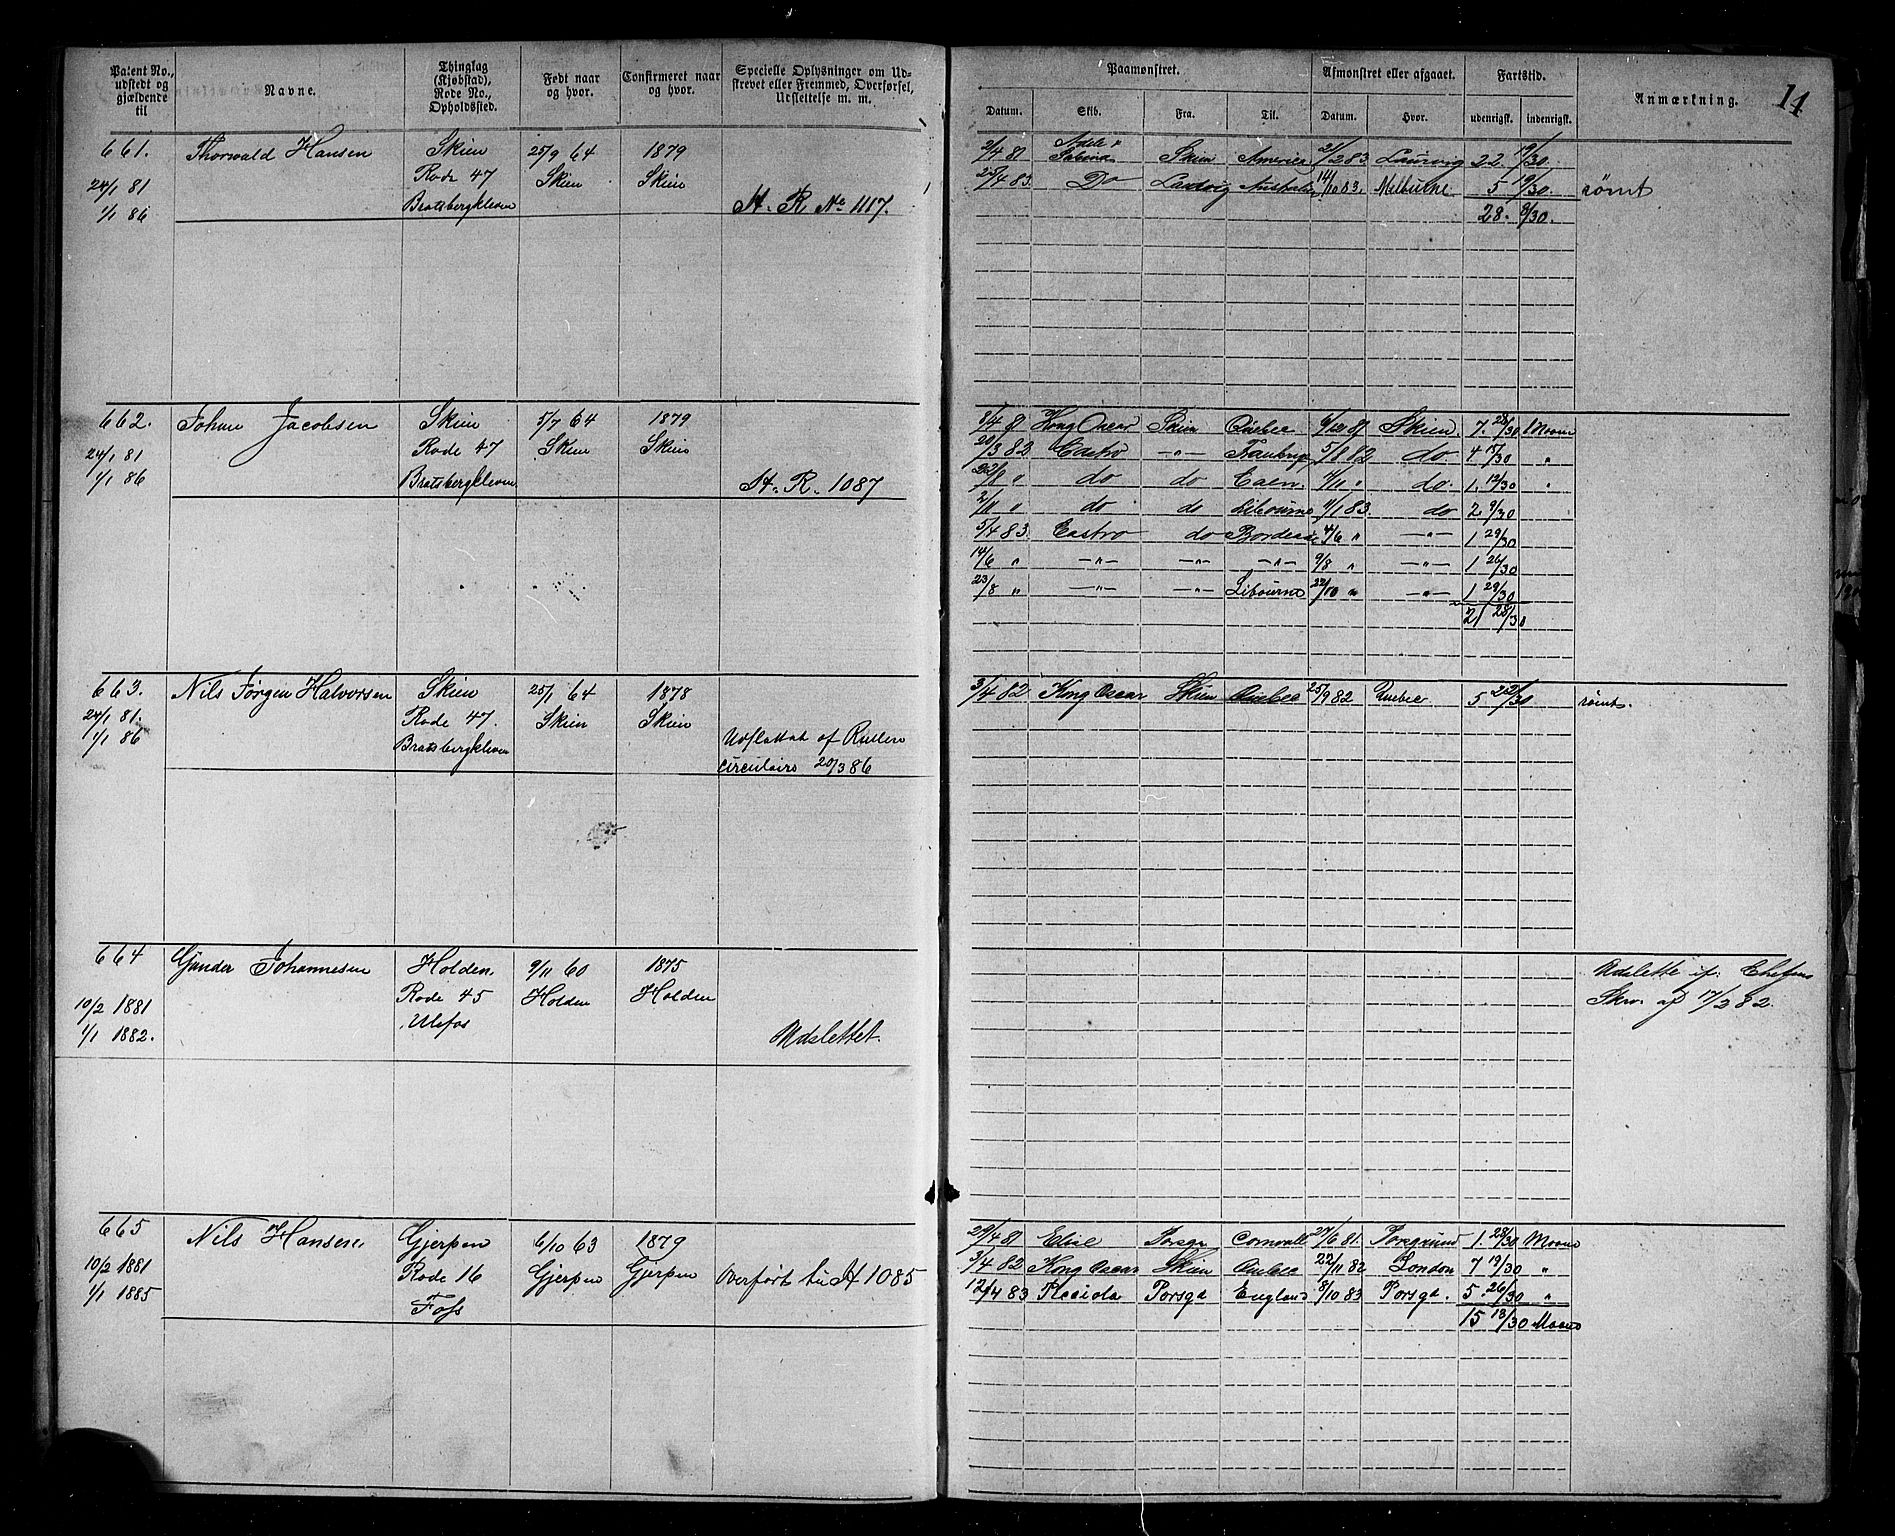 Patent No., udstedt og gjældende til
Navne.
Thinglag (Kjøbstad), Rode No., Opholdssted.
Født naar og hvor.
Confirmeret naar og hvor.
Specielle Oplysninger om Udstrevet eller Fremmed, Overførsel, Udslettelse m. m.
Paamønstret.
Afmønstret eller afgaaet.
Fartstid.
Anmærkning.
11
Datum. Skib. Fra. Til. Datum. Hvor. udenrigsk. indenrigsk.
661. Thorwald Hansen Skien 25/9 64 1879
24/1 81 Rode 47 Skien Skien
1/1 86 Bratsbergkleven H. R No 1117.
2/4 81 Adele & Sabina Skien America 21/2 83 Laurvig 22. 19/30.
25/4 83. Do Laurvig Australien 14/10 83. Melburne 5 19/30. rømt
28. 8/30.
662. Johan Jacobsen Skien 5/7 64 1879
24/1 81 Rode 47 Skien Skien
1/1 86 Bratsbergkleven H. R. 1087
8/4 81 Kong Oscar Skien Quebec 6/12 81 Skien. 7. 28/30 Moane
20/3 82 Castro —"— 5/8 82 do 4 15/30 "
22/8 " do do Caen. 4/11 " do. 1. 12/30 "
2/11 " do do Libourne 11/1 83. do 2 9/30
5/4 83. Castro do Bordeaux 4/6 " —"— 1 29/30
14/6 " —"— —"— —"— 9/8 " —"— 1 26/30
23/8 " —"— —"— Libourne 22/10 " —"— 1 29/30
21 28/30
663. Nils Jørgen Halvorsen Skien 25/1 64 1878
24/1 81. Rode 47. Skien Skien
1/1 86 Bratsbergkleven Udslettet af Rullen
circulaire 20/3 86
3/4 82 Kong Oscar Skien Quebec 25/9 82 Quebec 5 22/30 rømt.
664 Gunder Johannesen Holden. 9/11 60 1875
10/2 1881 Rode 45 Holden Holden
1/1 1882. Ulefos Udslettet.
Udslette if. Chefens
Skr. af 17/2 82.
665 Nils Hansen Gjerpen 6/10 63 1879
10/2 1881 Rode 16 Gjerpen Gjerpen Overført til H 1085
1/1 1885 Foss
29/4 81 Elise Porsgr Cornwall 27/6 81. Porsgrund 1. 28/30 Moane
3/4 82 Kong Oscar Skien Quebec 22/11 82 London 7 19/30 "
12/4 83 Placida Porsgr England 8/10 83 Porsgr. 5. 26/30 "
15 13/30 Moane